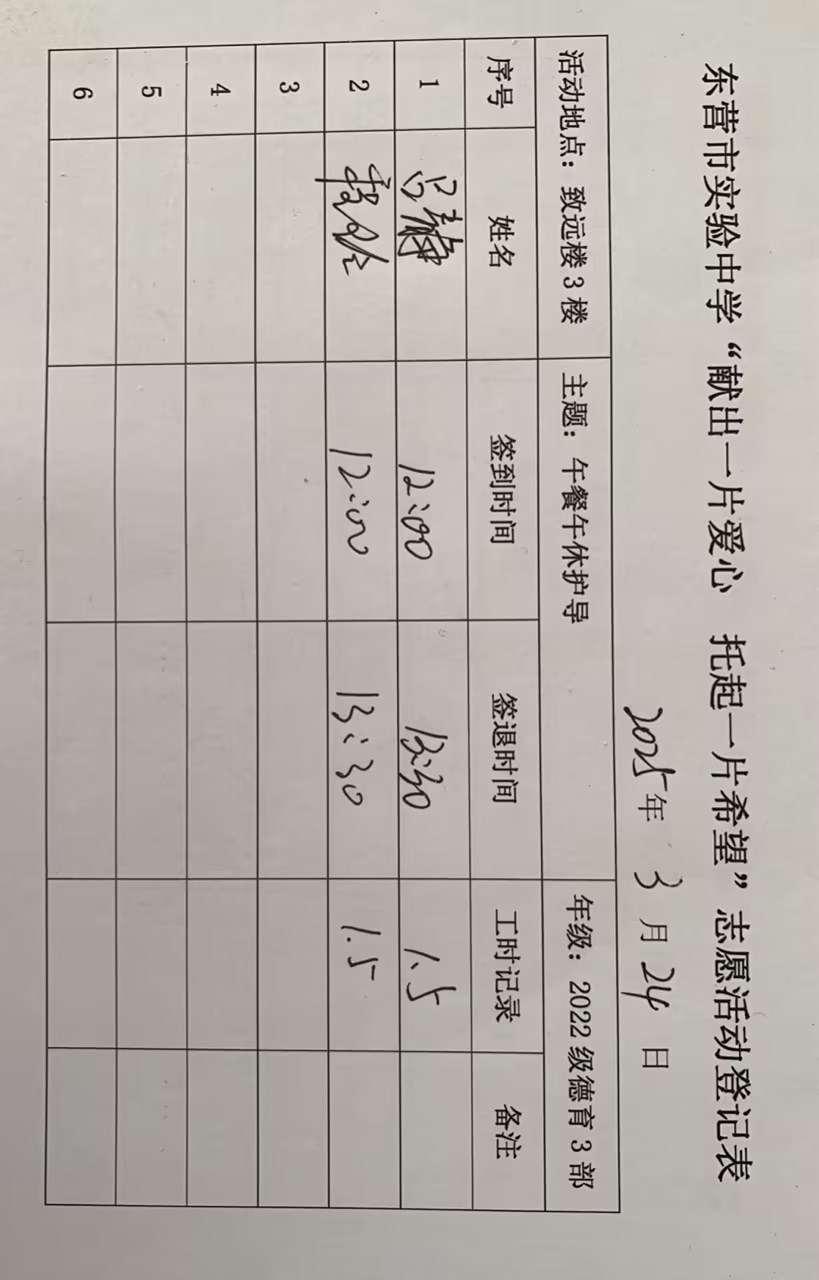 东营市实验中学“献出一片爱心 托起一片希望”志愿活动登记表
2025年 3 月 24 日
活动地点：致远楼 3 楼 主题：午餐午休护导 年级：2022 级德育 3 部
序号 姓名 签到时间 签退时间 工时记录 备注
1 吕静 12:00 13:30 1.5
2 12:00 13:30 1.5
3
4
5
6